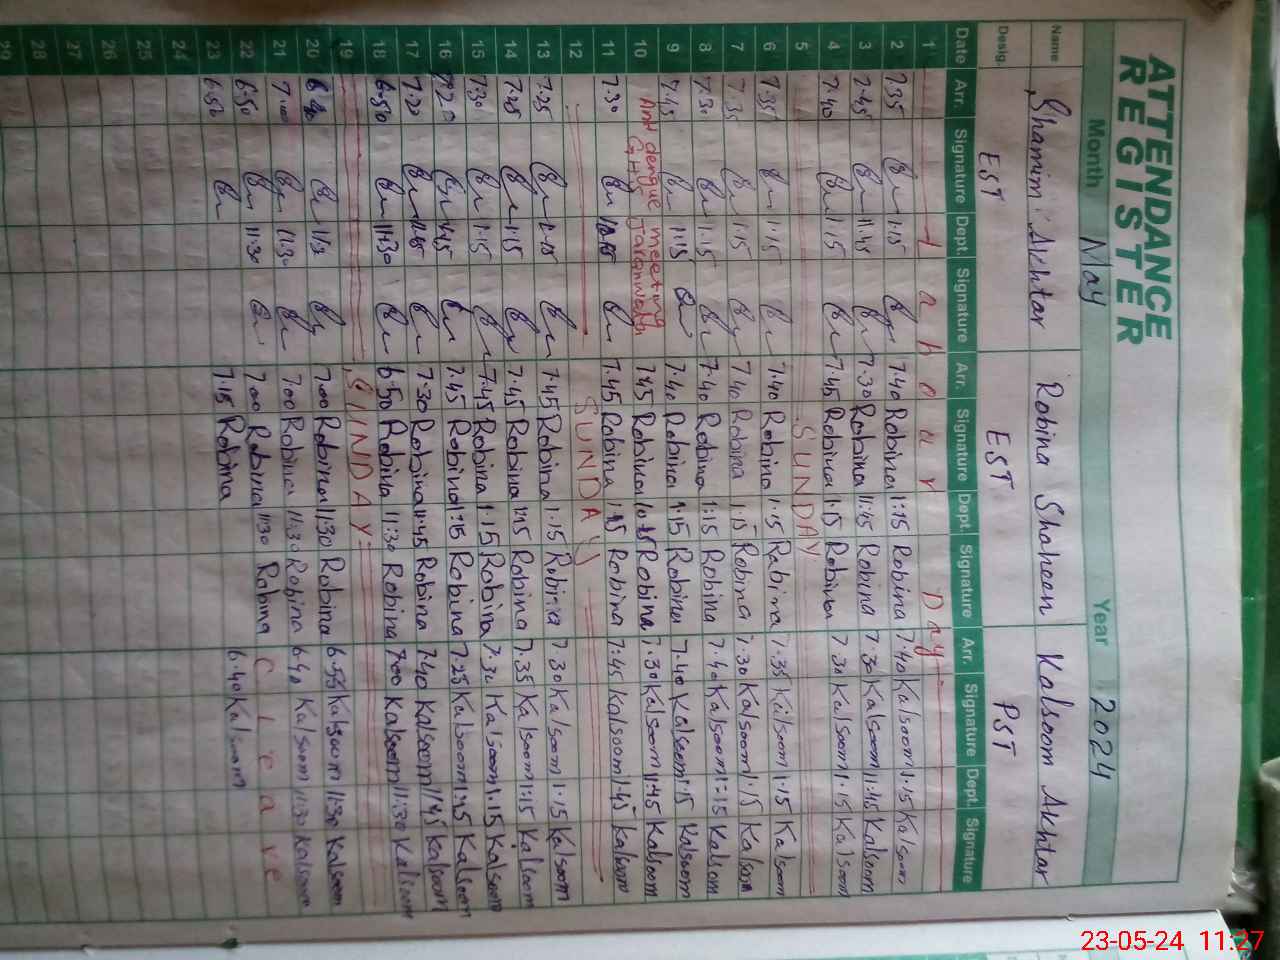 ATTENDANCE
REGISTER
Month May Year 2024
Name Shamim Akhtar Robina Shaheen Kalsoom Akhtar
Desig. EST EST PST
Date Arr. Signature Dept. Signature Arr. Signature Dept. Signature Arr. Signature Dept. Signature
1 Labour Day
2 7.35 1.15 7.40 Robina 1.15 Robina 7.40 Kalsoom 1.15 Kalsoom
3 7.45 11.45 7.30 Robina 11.45 Robina 7.30 Kalsoom 11.45 Kalsoom
4 7.40 1.15 7.45 Robina 1.15 Robina 7.30 Kalsoom 1.15 Kalsoom
5 SUNDAY
6 7.35 1.15 7.40 Robina 1.15 Robina 7.35 Kalsoom 1.15 Kalsoom
7 7.35 1.15 7.40 Robina 1.15 Robina 7.30 Kalsoom 1.15 Kalsoom
8 7.30 1.15 7.40 Robina 1.15 Robina 7.40 Kalsoom 1.15 Kalsom
9 7.45 1.15 7.40 Robina 1.15 Robina 7.40 Kalsoom 1.15 Kalsoom
10 Anti dengue meeting 7.45 Robina Robina 7.30 Kalsoom 11.45 Kalsoom
GHS Jaranwala
11 7.30 7.45 Robina Robina 7.45 Kalsoom 1.45 Kalsoom
12 SUNDAY
13 7.25 7.45 Robina 1.15 Robina 7.30 Kalsoom 1.15 Kalsoom
14 7.25 1.15 7.45 Robina 1.15 Robina 7.35 Kalsoom 1.15 Kalsoom
15 7.30 1.15 7.45 Robina 1.15 Robina 7.30 Kalsoom 1.15 Kalsoom
16 7.20 7.45 Robina 1.15 Robina 7.25 Kalsoom Kalsoom
17 7.20 7.30 Robina 11.45 Robina 7.40 Kalsoom 11.45 Kalsoom
18 6.50 11.30 6.50 Robina 11.30 Robina 7.00 Kalsoom 11.30 Kalsoom
19 SUNDAY
20 7.00 Robina 11.30 Robina 6.55 Kalsoom 11.30 Kalsoom
21 7.00 11.30 7.00 Robina 11.30 Robina 6.40 Kalsoom 11.30 Kalsoom
22 6.50 11.30 7.00 Robina 11.30 Robina C leave
23 6.50 7.15 Robina 6.40 Kalsoom
24
25
26
27
28
29
23-05-24 11:27